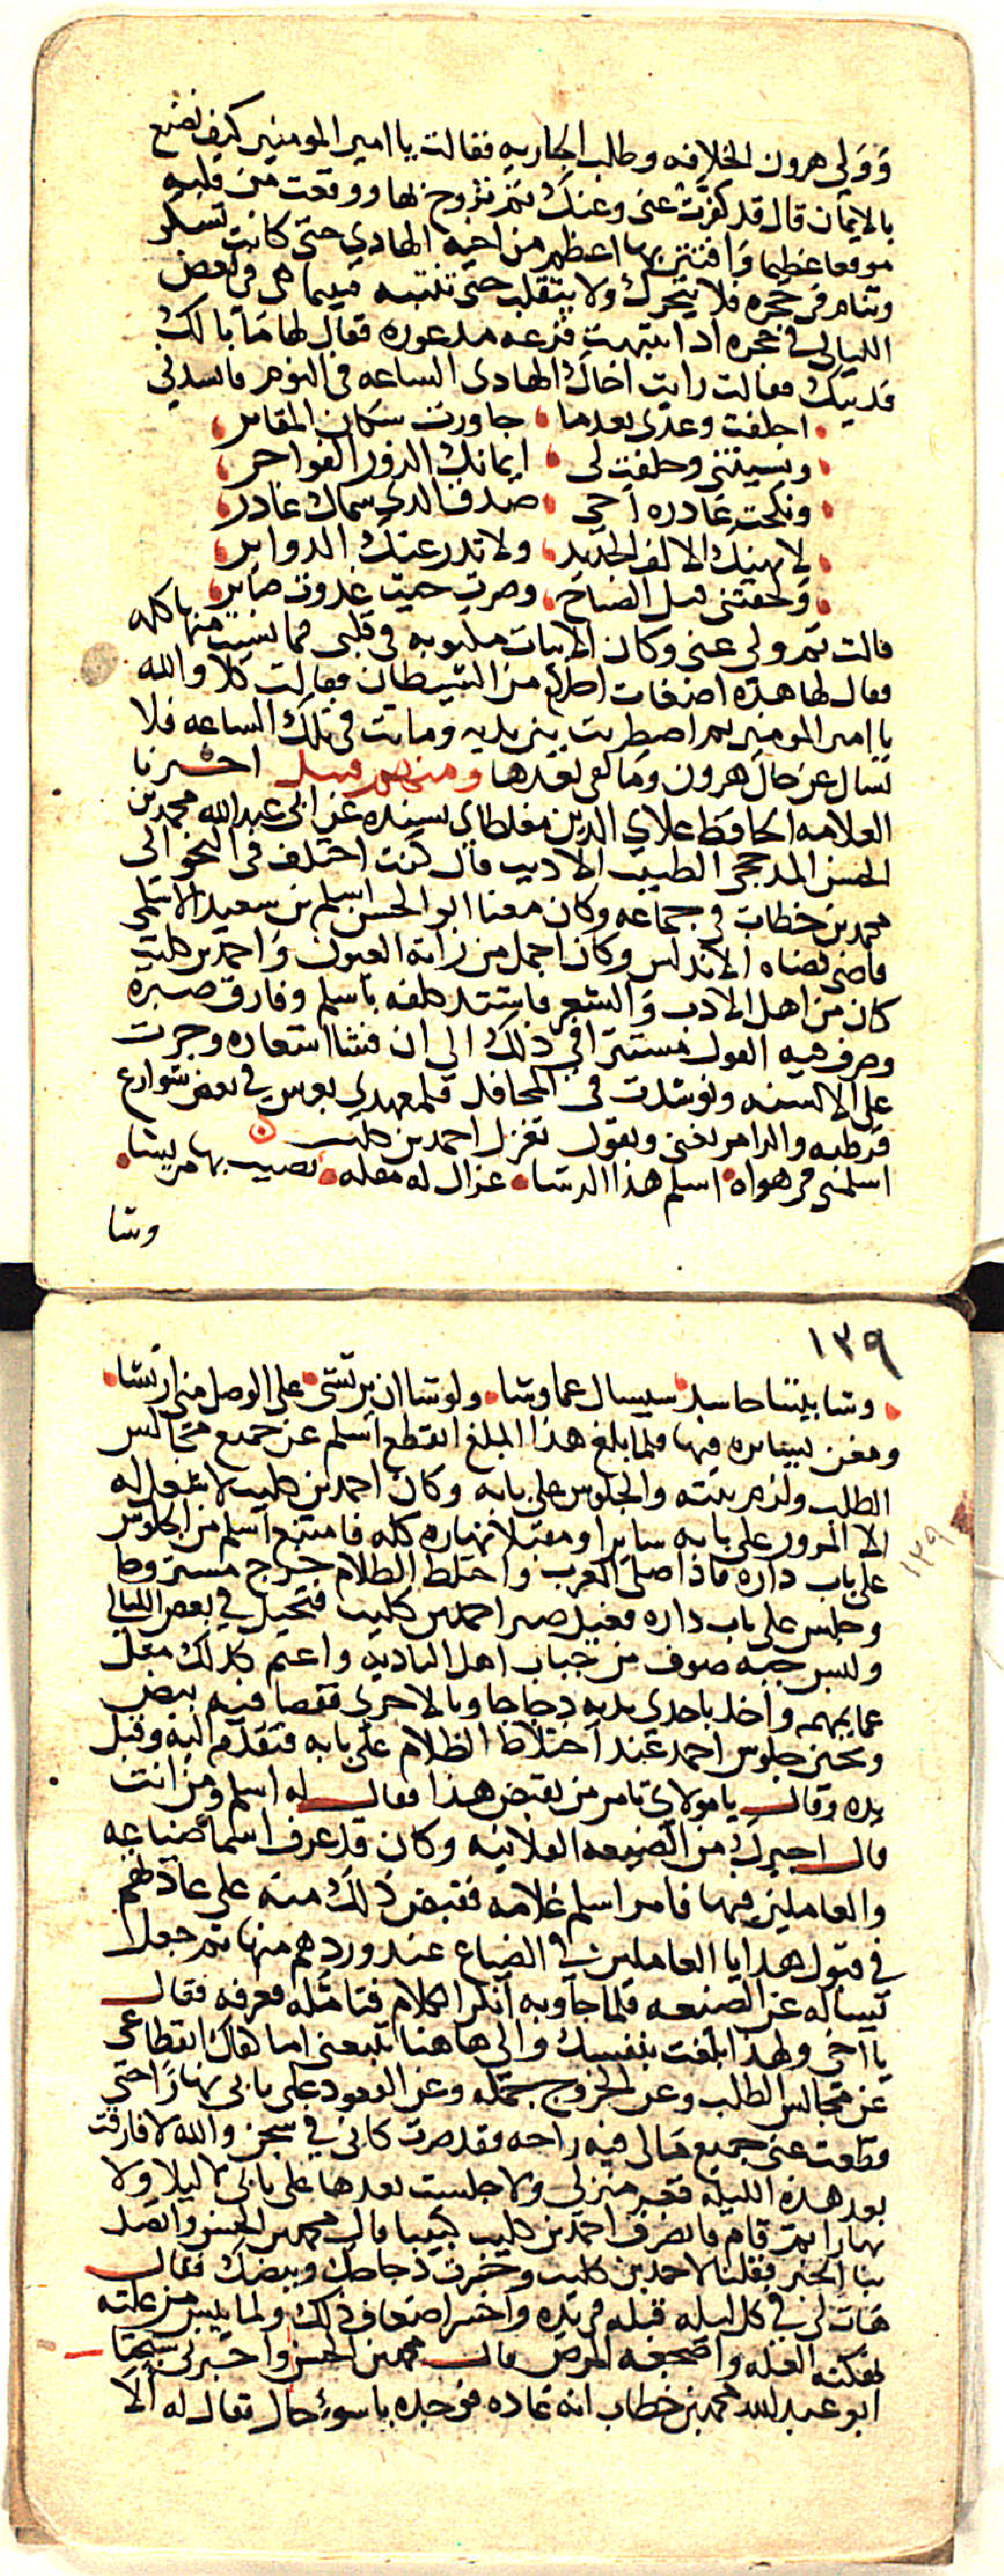 وَوَلي هرون الخلافه وطلب الجاريه فقالت يا امير المومنين كيف نصنع
بالايمان قال قد كفرت عنى وعنك ثم تزوج بها ووقعت من قلبه
موقعا عظيما وَافتتن بها اعظم من اخيه الهادي حتى كانت تسكر
وتنام في حجره فلا يتحرك ولا يتقلب حتى تنتبه فبينما هى في بعض
الليالى في حجره اذ انتبهت فزعه مدعوره فقال لها مَا بالك
فديتك فقالت رايت اخاك الهادى الساعه فى النوم وانشدنى
اخلفت وعدى بعدما جاورت سكان المقابر
ونسيتنى وحلفت لى ايمانك الزور الفواجر
ونكحت غادره اخى صدق الذى سماك غادر
لا يهنك الالف الجديد ولا تدر عنك الدواير
ولحقتنى قبل الصباح وصرت حيث غدوت صاير
قالت ثم ولي عنى وكان الابيات مكتوبه في قلبى فما نسيت منها كلمه
فقال لها هذه اضغاث احلام من الشيطان فقالت كلا والله
يا امير المومنين ثم اضطربت بين يديه وماتت فى تلك الساعه فلا
تسال عن حال هرون وَما لقى بعدها ومنهم قتيل اخبرنا
العلامه الحافظ علاي الدين مغلطاى بسنده عن ابى عبد الله محمد بن
الحسن المدحجى الطبيب الاديب قال كنت اختلف فى النحو الى
محمد بن خطاب فى جماعه وكان معنا ابو الحسن اسلم بن سعيد الاسلمى
قاضى قضاه الاندلس وكان اجمل من راته العيون وَاحمد بن كليب
كان من اهل الادب وَالشعر فاشتد كلفه باسلم وفارق صبره
وصرف فيه القول مستترا في ذلك الى ان فشا اشعاره وجرت
على الالسنه وتوشدت فى المحافل فلمعهدي بعرس في بعض شوارع
قرطبه والزامر يغنى ويقول تغزل احمد بن كليب
اسلمنى فى هواه اسلم هذا الرشا غزال له مقله يصيب بها من يشا
وشا
١٣٩
وشا بيننا حاسد سيسال عما وشا ولو شا ان يرتشى على الوصل منى ارتشا
ومغن يسايره فيها فلما بلغ هذا المبلغ انقطع اسلم عن جميع مجالس
الطلب ولزم بيته والجلوس على بابه وكان احمد بن كليب لا شغل له
الا المرور على بابه سايرا ومقبلا نهاره كله فامتنع اسلم من الجلوس
١٣٩
على باب داره فاذا صلى المغرب واختلط الظلام خرج مستروحا
وجلس على باب داره فعيل صبر احمد بن كليب فتحيل في بعض الليالي
ولبس جبه صوف من جباب اهل الباديه واعتم كذلك مثل
عمايمهم واخذ باحدي يديه دجاجا وبالاخرى قفصا فيه بيض
وتحين جلوس احمد عند اختلاط الظلام على بابه فتقدم اليه وقبل
يده وقال يا مولاي تامر من يقبض هذا فقال له اسلم ومن انت
قال اجيرك من الضيعه الفلانيه وكان قد عرف اسما ضياعه
والعاملين فيها فامر اسلم غلامه فقبض ذلك منه على عادتهم
في قبول هدايا العاملين في الضياع عند ورودهم منها ثم جعل
يساله عن الضيعه فلما جاوبه انكر الكلام فتامله فعرفه فقال
يا اخى ولهذا بلغت بنفسك والى هاهنا تتبعنى اما كفاك انقطاعى
عن مجالس الطلب وعن الخروج جمله وعن القعود على بابى نهارا حتى
قطعت عنى جميع مَالى فيه راحه فقد صرت كانى في سجن والله لا فارقت
بعد هذه الليله قعر منزلى ولا جلست بعدها على بابى لا ليلا ولا
نهارا ثم قام فانصرف احمد بن كليب كئيبا قال محمد بن الحسن واتصل
بنا الخبر فقلنا لاحمد بن كليب وخسرت دجاجك وبيضك فقال
هَات لى في كل ليله قبله فى يده واخسر اضعاف ذلك ولما يئس من
نهكته العله واضجعه المرض قال محمد بن الحسن واخبرنى شيخنا
ابو عبد الله محمد بن خطاب انه عاده فوجده باسوء حال فقال له الا